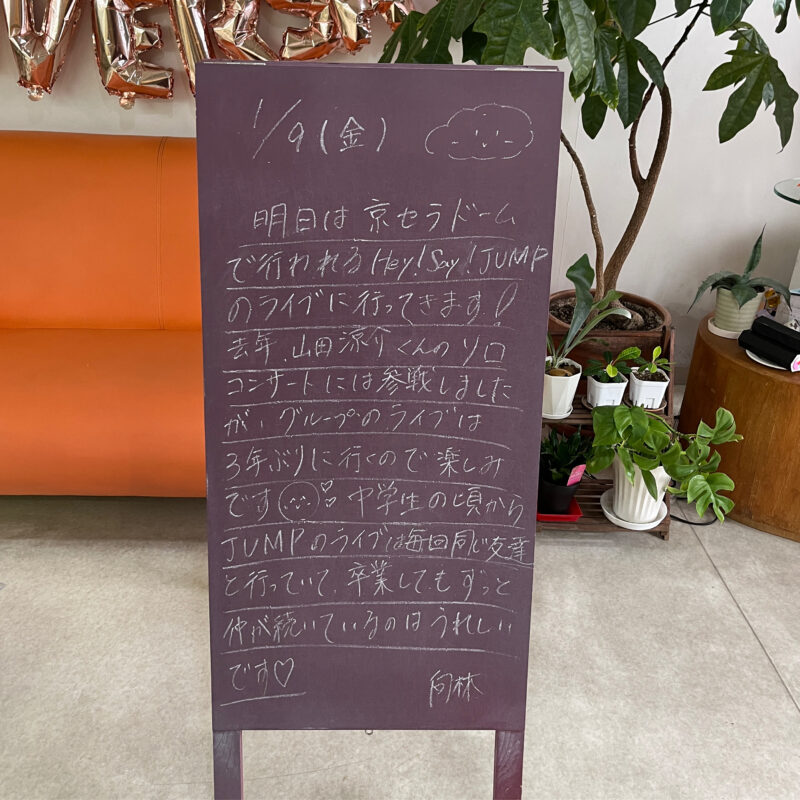 1/9(金)
明日は京セラドーム
で行われるHey!Say!JUMP
のライブに行ってきます!
去年、山田涼介くんのソロ
コンサートには参戦しました
が、グループのライブは
3年ぶりに行くので楽しみ
です 中学生の頃から
JUMPのライブは毎回同じ友達
と行っていて、卒業してもずっと
仲が続いているのはうれしい
です♡
向林